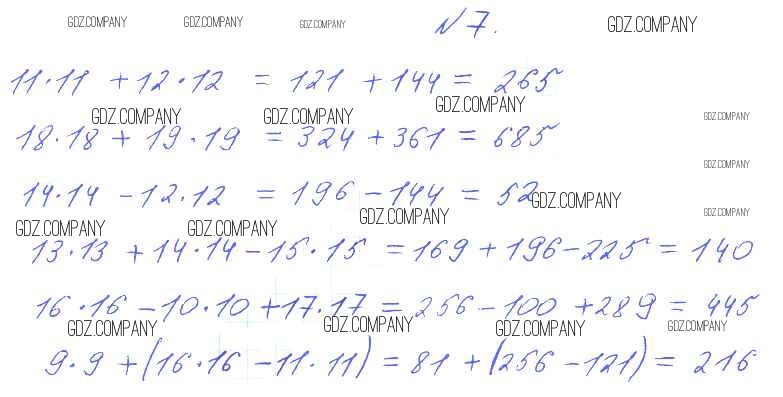 GDZ.COMPANY GDZ.COMPANY GDZ.COMPANY N7. GDZ.COMPANY
11·11 + 12·12 = 121 + 144 = 265
GDZ.COMPANY GDZ.COMPANY GDZ.COMPANY GDZ.COMPANY
18·18 + 19·19 = 324 + 361 = 685
GDZ.COMPANY
14·14 - 12·12 = 196 - 144 = 52 GDZ.COMPANY
GDZ.COMPANY GDZ.COMPANY GDZ.COMPANY GDZ.COMPANY
13·13 + 14·14 - 15·15 = 169 + 196 - 225 = 140
16·16 - 10·10 + 17·17 = 256 - 100 + 289 = 445
GDZ.COMPANY GDZ.COMPANY GDZ.COMPANY GDZ.COMPANY
9·9 + (16·16 - 11·11) = 81 + (256 - 121) = 216